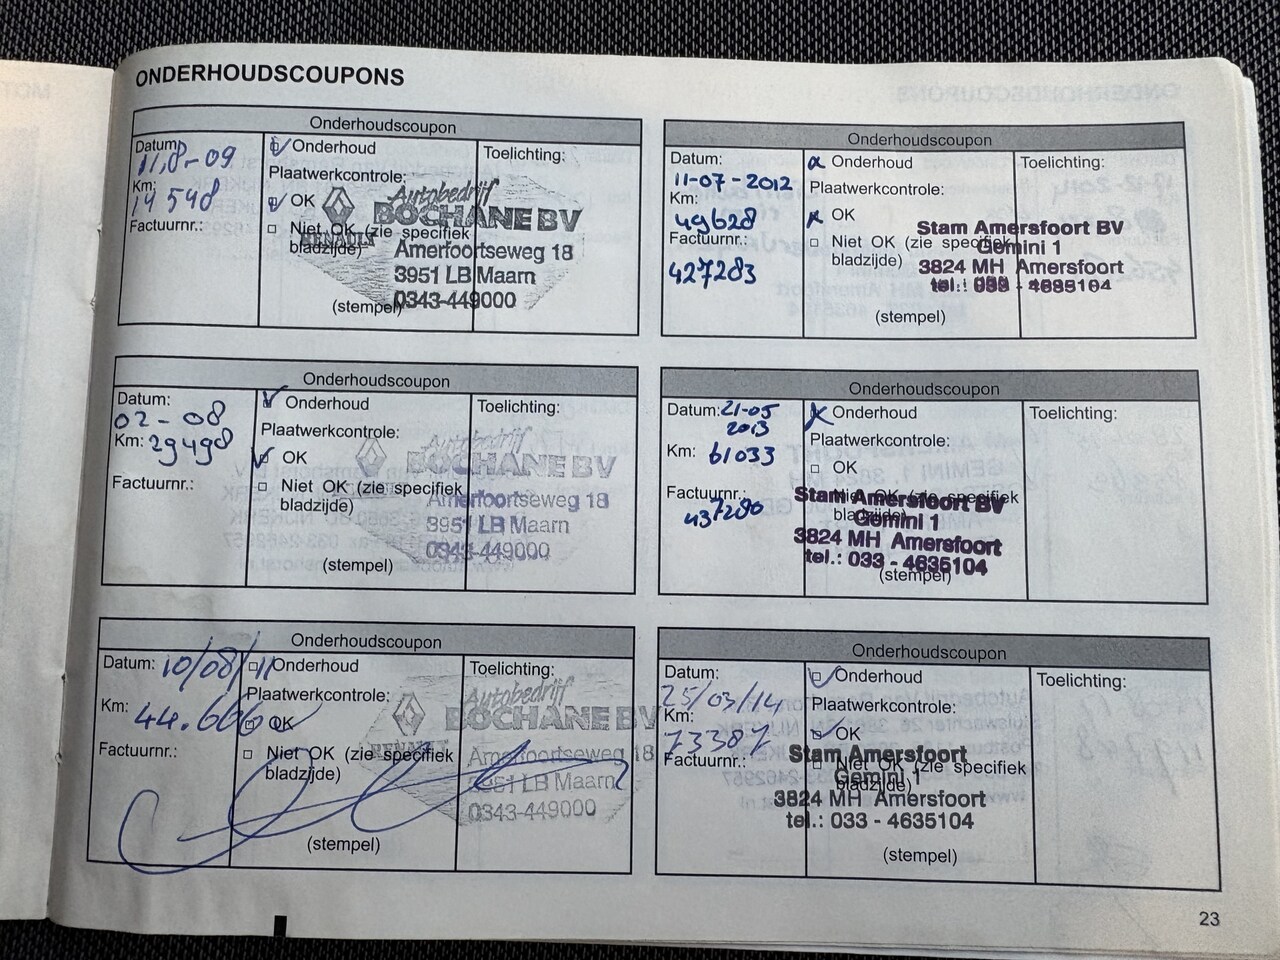 ONDERHOUDSCOUPONS
Onderhoudscoupon
Datum: 11,8-09
Km: 14 548
Factuurnr.:
Onderhoud
Plaatwerkcontrole:
OK
Niet OK (zie specifiek
bladzijde)
(stempel)
Toelichting:
Autobedrijf
BOCHANE BV
RENAULT
Amerfoortseweg 18
3951 LB Maarn
0343-449000
Onderhoudscoupon
Datum:
02-08
Km: 29498
Factuurnr.:
Onderhoud
Plaatwerkcontrole:
OK
Niet OK (zie specifiek
bladzijde)
(stempel)
Toelichting:
Autobedrijf
BOCHANE BV
Amerfoortseweg 18
3951 LB Maarn
0343-449000
Onderhoudscoupon
Datum: 10/08/11
Km: 44.666
Factuurnr.:
Onderhoud
Plaatwerkcontrole:
OK
Niet OK (zie specifiek
bladzijde)
(stempel)
Toelichting:
Autobedrijf
BOCHANE BV
RENAULT
Amerfoortseweg 18
3951 LB Maarn
0343-449000
Onderhoudscoupon
Datum:
11-07-2012
Km:
49628
Factuurnr.:
427283
Onderhoud
Plaatwerkcontrole:
OK
Niet OK (zie specifiek
bladzijde)
(stempel)
Toelichting:
Stam Amersfoort BV
Gemini 1
3824 MH Amersfoort
tel.: 033 - 4635104
Onderhoudscoupon
Datum: 21-05
2013
Km: 61033
Factuurnr.:
437280
Onderhoud
Plaatwerkcontrole:
OK
Niet OK (zie specifiek
bladzijde)
(stempel)
Toelichting:
Stam Amersfoort BV
Gemini 1
3824 MH Amersfoort
tel.: 033 - 4635104
Onderhoudscoupon
Datum:
25/03/14
Km:
73387
Factuurnr.:
Onderhoud
Plaatwerkcontrole:
OK
Niet OK (zie specifiek
bladzijde)
(stempel)
Toelichting:
Stam Amersfoort
Gemini 1
3824 MH Amersfoort
tel.: 033 - 4635104
23